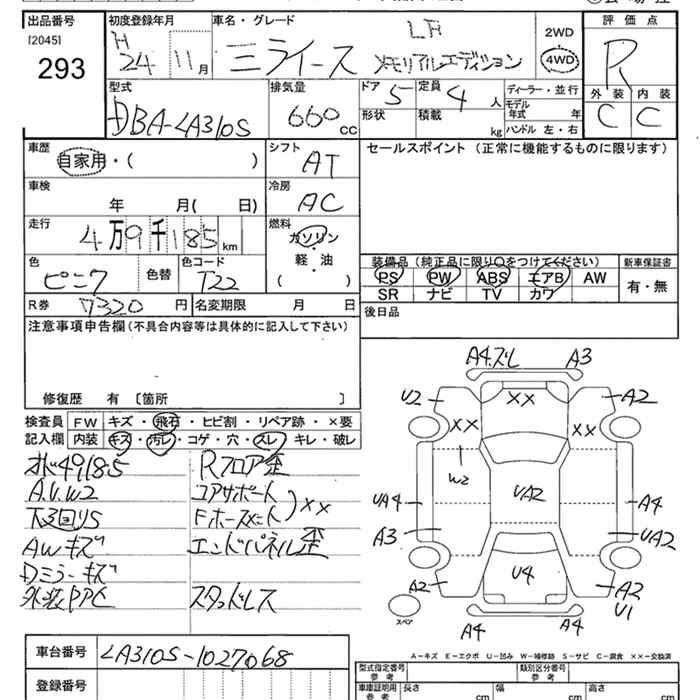 出品番号
[2045]
293
初度登録年月
H 24 11月
車名・グレード
ミライース
メモリアルエディション
2WD
4WD
評価点
R
外装 内装
C C
型式
DBA-LA310S
排気量
660 cc
ドア 5
形状
定員 4 人
積載 kg
ディーラー・並行
モデル年式 年
ハンドル 左・右
車歴
自家用・( )
シフト AT
セールスポイント (正常に機能するものに限ります)
車検
年 月( 日)
冷房 AC
走行
4万9千185km
燃料
ガソリン
軽・油
( )
色
ピンク
色替
色コード
T22
装備品 (純正品に限り○をつけてください)
新車保証書
PS PW ABS エアB AW
有・無
SR ナビ TV カワ
R券 7320 円
名変期限 月 日
後日品
注意事項申告欄 (不具合内容等は具体的に記入して下さい)
修復歴 有 〔箇所 〕
検査員 FW キズ・飛石・ヒビ割・リペア跡・×要
記入欄 内装 キズ・汚レ・コゲ・穴・スレ・キレ・破レ
オド49185
A.U.W2
下3回りS
AWキズ
Dミラーキズ
外装PPC
Rフロア歪
コアサポート
Fホースメント
) ××
エンドパネル歪
スタッドレス
A4.ズレ A3
U2 A2
×× ×× ××
W2
UA4 UA2 A4
A3 UA2
A2 U4 A2
U1
スペア
A4 A4
A-キズ E-エクボ U-凹み W-補修跡 S-サビ C-腐食 ××-交換済
車台番号 LA310S-1027068
登録番号
型式指定番号 参考
類別区分番号 参考
車庫証明用 参考
長さ cm
幅 cm
高さ cm